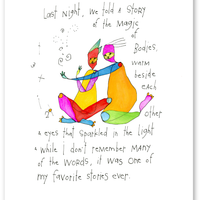 Last Night, we told a STORY
of the MAGIC
of
Bodies,
warm
beside
each
other
& eyes that sparkled in the light
& while I don't remember MANY
of the WORDS, it was one of
my favorite stories ever.